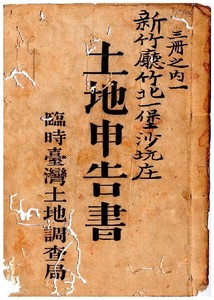 三冊之內一
新竹廳竹北一堡沙坑庄
土地申告書
臨時臺灣土地調查局